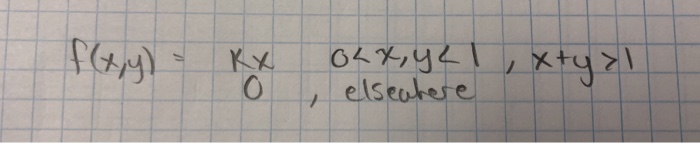 f(x,y) = Kx 0<x,y<1 , x+y>1
0 , elsewhere